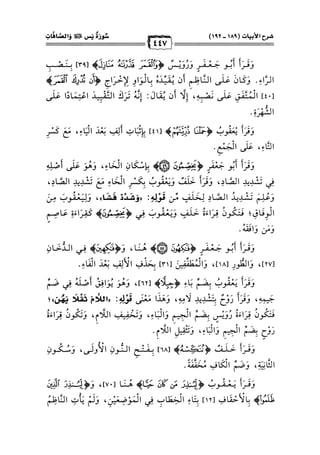 شرح الأبيات (١٨٩ - ١٩٢)
سُورَةُ يسٓ ﷺ وَالصَّافَّاتِ
٤٤٧
وَقَرَأَ أَبُو جَعْفَرٍ وَرُوَيْسٌ ﴿وَالْقَمَرَ قَدَّرْنَاهُ مَنَازِلَ﴾ [٣٩] بِنَصْبِ
الرَّاءِ. وَكَانَ عَلَى النَّاظِمِ أَنْ يُقَيِّدَهُ بِالْوَاوِ لِإِخْرَاجِ ﴿أَن تُدْرِكَ الْقَمَرَ﴾
[٤٠] الْمُتَّفَقِ عَلَى نَصْبِهِ، إِلَّا أَنْ يُقَالَ: إِنَّهُ تَرَكَ التَّقْيِيدَ اعْتِمَادًا عَلَى
الشُّهْرَةِ.
وَقَرَأَ يَعْقُوبُ ﴿حَمَلْنَا ذُرِّيَّتَهُمْ﴾ [٤١] بِأَلِفٍ بَعْدَ الْيَاءِ، مَعَ كَسْرِ
التَّاءِ، عَلَى الْجَمْعِ.
وَقَرَأَ أَبُو جَعْفَرٍ ﴿يَخِصِّمُونَ﴾ بِإِسْكَانِ الْخَاءِ، وَهُوَ عَلَى أَصْلِهِ
فِي تَشْدِيدِ الصَّادِ، وَقَرَأَ خَلَفٌ وَيَعْقُوبُ بِكَسْرِ الْخَاءِ مَعَ تَشْدِيدِ الصَّادِ،
وَعُلِمَ تَشْدِيدُ الصَّادِ لِخَلَفٍ مِنْ قَوْلِهِ: «وَشَدِّدْ فَشَا»، وَلِيَعْقُوبَ مِنَ
الْوِفَاقِ؛ فَتَكُونُ قِرَاءَةُ خَلَفٍ وَيَعْقُوبَ فِي ﴿يَخِصِّمُونَ﴾ كَقِرَاءَةِ عَاصِمٍ
وَمَنْ وَافَقَهُ.
وَقَرَأَ أَبُو جَعْفَرٍ ﴿فَكِهُونَ﴾ هُنَا، وَ﴿فَكِهِينَ﴾ فِي الدُّخَانِ
[٢٧]، وَالطُّورِ [١٨]، وَالْمُطَفِّفِينَ [٣١] بِحَذْفِ الْأَلِفِ بَعْدَ الْفَاءِ.
وَقَرَأَ يَعْقُوبُ بِضَمِّ بَاءِ ﴿جِبِلًّا﴾ [٦٢]، وَهُوَ يُوَافِقُ أَصْلَهُ فِي ضَمِّ
جِيمِهِ، وَقَرَأَ رَوْحٌ بِتَشْدِيدِ لَامِهِ، وَهَذَا مَعْنَى قَوْلِهِ: «اللَّامَ ثَقَّلَا يَهُنْ»؛
فَتَكُونُ قِرَاءَةُ رُوَيْسٍ بِضَمِّ الْجِيمِ وَالْبَاءِ، وَتَخْفِيفِ اللَّامِ، وَتَكُونُ قِرَاءَةُ
رَوْحٍ بِضَمِّ الْجِيمِ وَالْبَاءِ، وَتَثْقِيلِ اللَّامِ.
وَقَرَأَ خَلَفٌ ﴿نُنَكِّسْهُ﴾ [٦٨] بِفَتْحِ النُّونِ الْأُولَى، وَسُكُونِ
الثَّانِيَةِ، وَضَمِّ الْكَافِ مُخَفَّفَةً.
وَقَرَأَ يَعْقُوبُ ﴿لِيُنذِرَ مَن كَانَ حَيًّا﴾ هُنَا [٧٠]، وَ﴿لِيُنذِرَ الَّذِينَ
ظَلَمُوا﴾ بِالْأَحْقَافِ [١٢] بِتَاءِ الْخِطَابِ فِي الْمَوْضِعَيْنِ، وَلَمْ يَأْتِ النَّاظِمُ